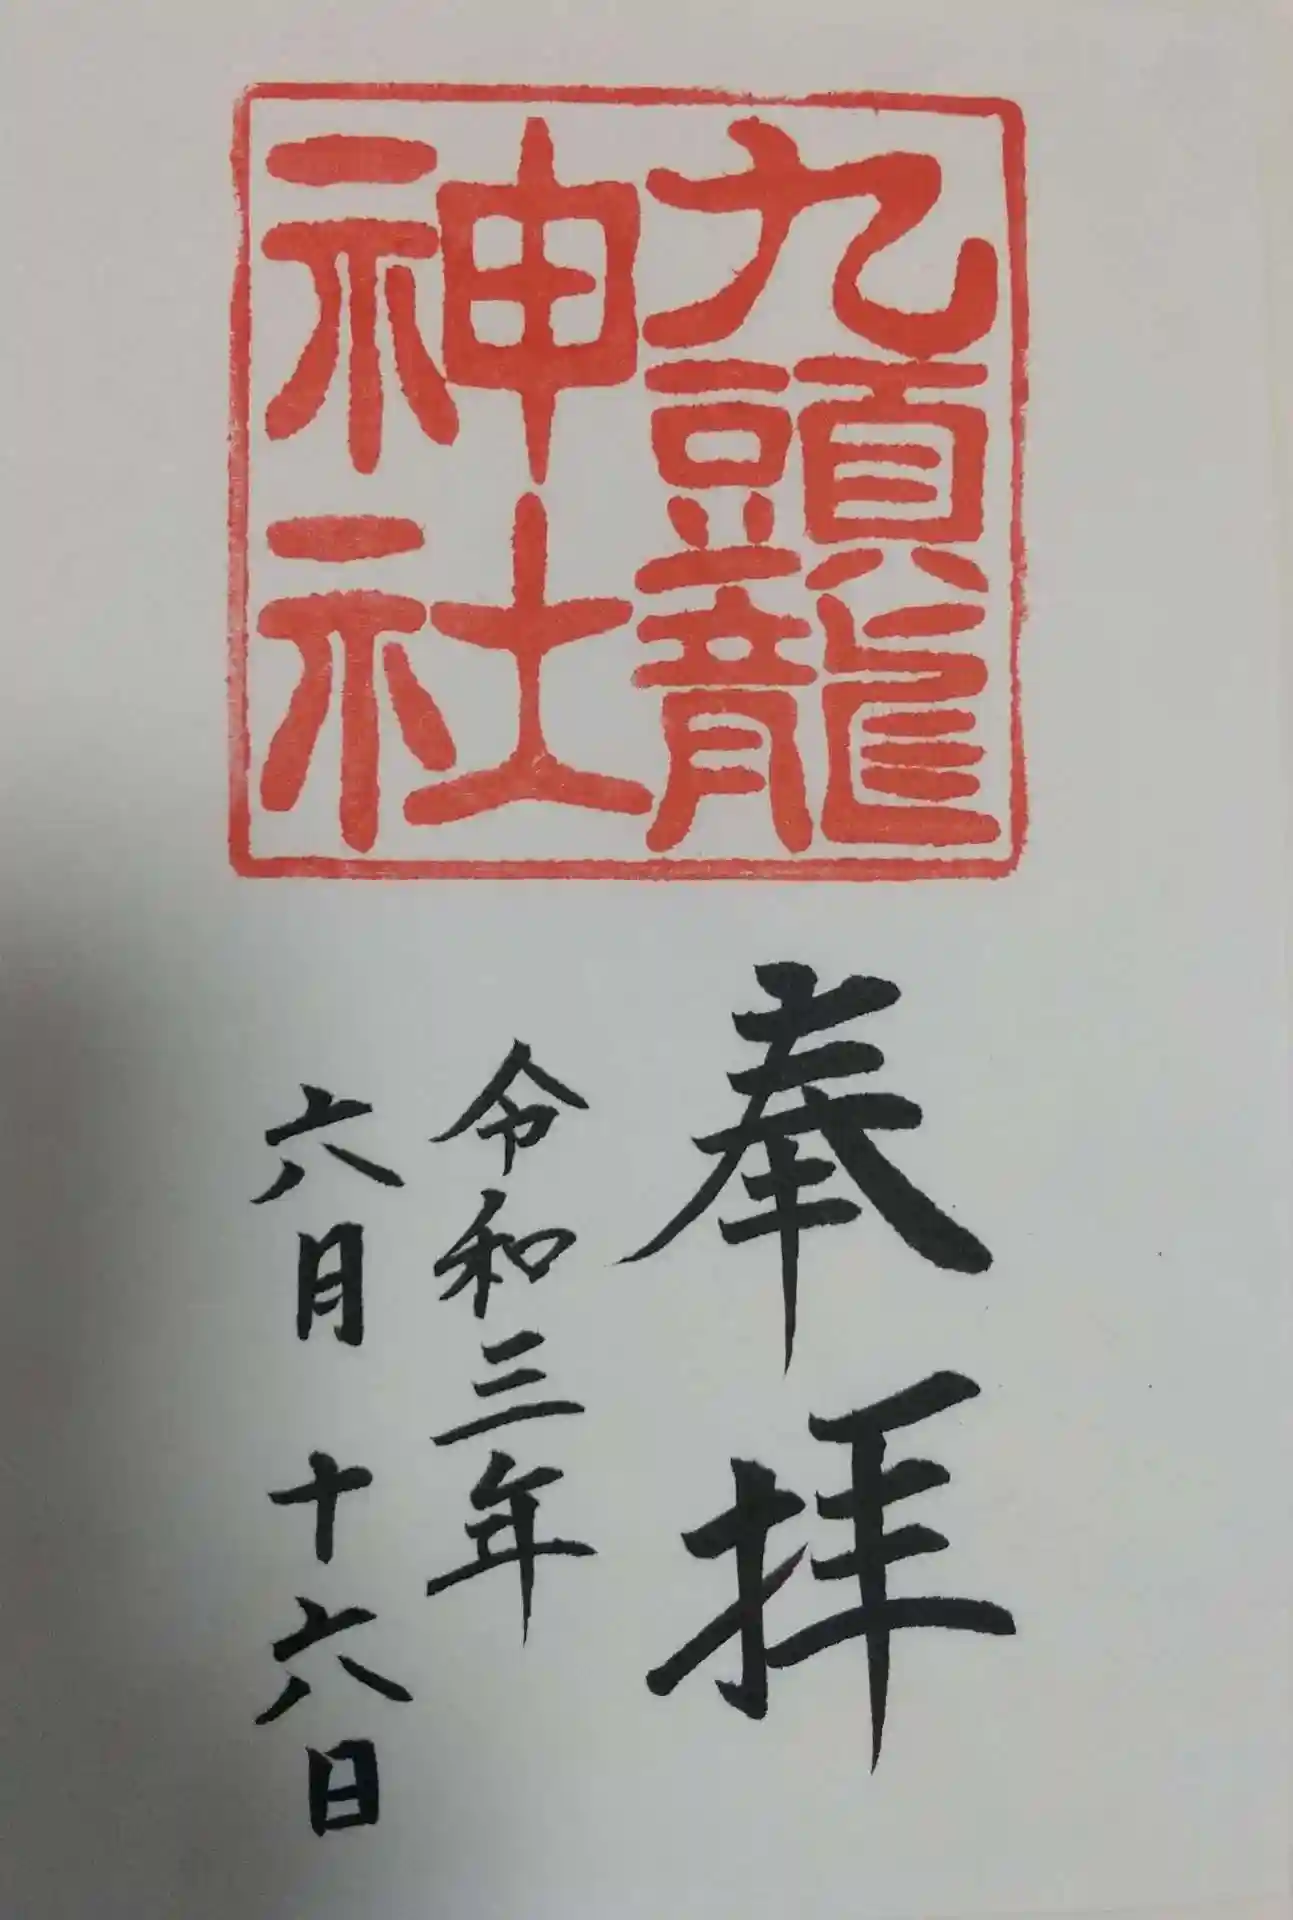 九頭龍
神社
奉拝
令和三年
六月十六日